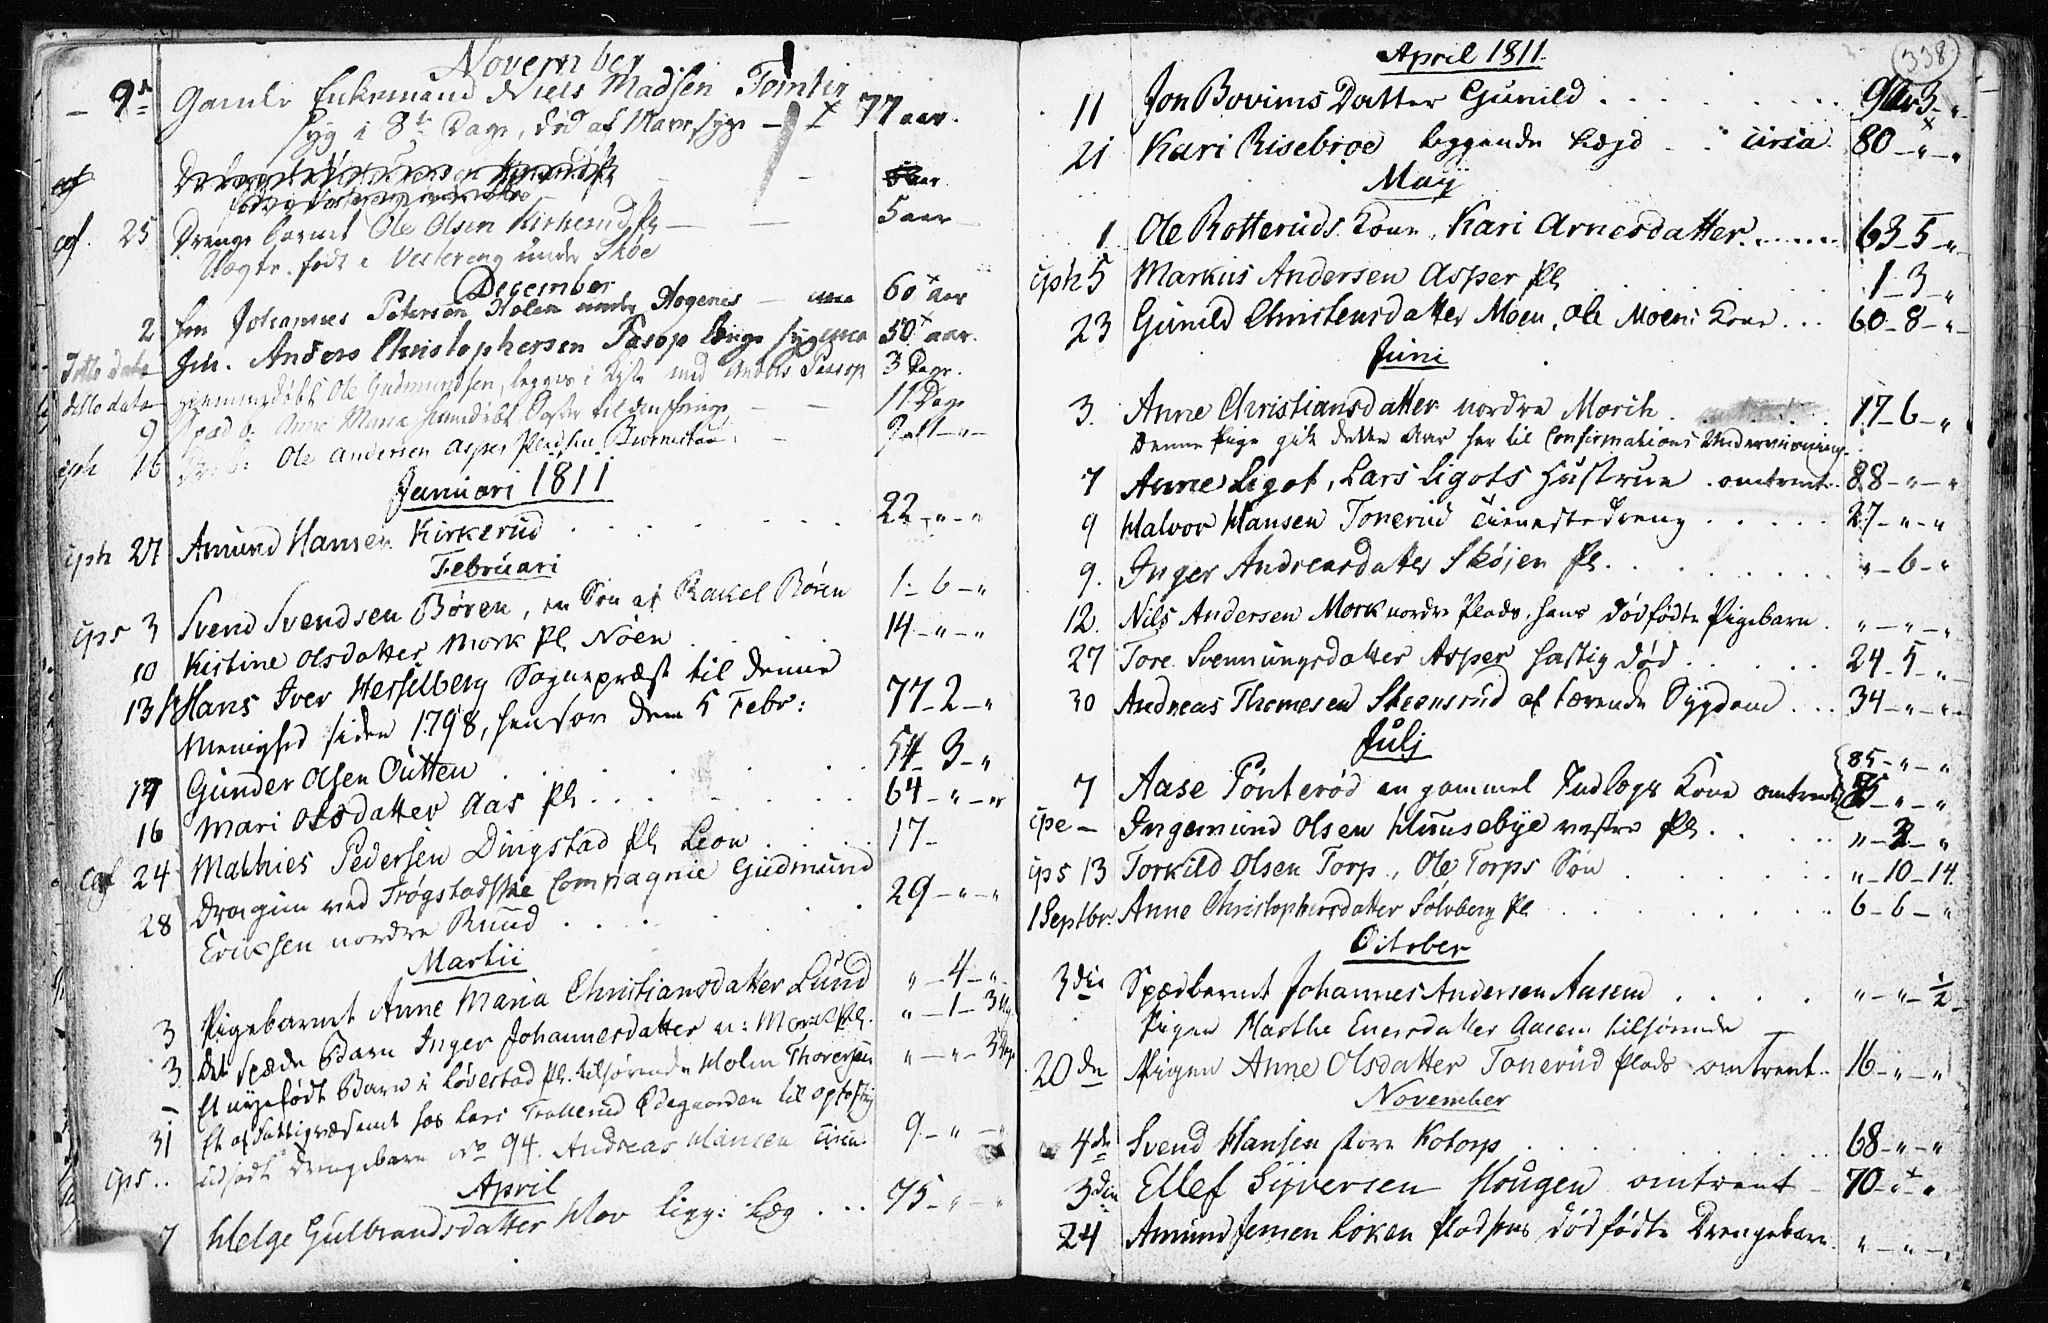 November
9de Gamle Enkemand Niels Madsen Tomter
syg i 8te Dage, død af Mavesyge 77 aar.
5 aar
cof. 25 Drengebarnet Ole Olsen Kirkerud Pl 5 aar
født i Vestereng under Skøe
December
2 Johannes Petersen Holen under Hogenes 60 aar
ditto dato Anders Christophersen Tasop længe syg 50 aar.
ditto dato hiemmedøbt Ole Gudmundsen, legges i Kiste med Anders Tasop 3 Dage.
9 Spæd b: Anne Maria hiemdøbt 11 Dage
cph 16 Ole Andersen Asper Pladsen
Januari 1811
cph 27 Amund Hansen Kirkerud 22 - " - "
Februari
cps 3 Svend Svendsen Børen, en Søn af Rakel Børen 1 - 6 - "
10 Kistine Olsdatter Mork Pl Nöen 14 - " - "
13 Hans Iver Hesselberg Sognepræst til denne
Menighed siden 1798, hensov den 5 Febr: 77 - 2 - "
14 Gunder Olsen Outten 54 - 3 - "
16 Mari Olsdatter Aas Pl 64 - " - "
cof 24 Mathies Pedersen Dingstad Pl Leon 17 -
28 Dragun ved Trøgstadske Compagnie Gudmund
Eriksen nordre Ruud 29 - " - "
Martii
3 Pigebarnet Anne Maria Christiansdatter Lund " - 4 - "
3 Det spæde Barn Inger Johannesdatter n: Mork Pl. " - 1 - 3 Ug.
- Et nyefødt Barn i Løvestad Pl. tilhørende Holm Thoresen " - " - 3 Dage
31 Et af Fattigvæsenet hos Lars Trollerud Ødegaarden til opfostrg
cps .. udsadt Drengebarn No 94. Andreas Hansen circa 9 - " - "
April
7 Helge Gulbrandsdatter Hov ligg: Læg 75 - " - "
338
April 1811.
11 Jon Bovims Datter Gunild
21 Kari Risebroe leggende Lægd circa 80 - " - "
Maij
1 Ole Rotteruds Kone, Kari Arnesdatter 63 - 5 - "
cph 5 Markus Andersen Asper Pl 1 - 3 - "
23 Gunild Christensdatter Moen, Ole Moens Kone 60 - 8 - "
Juni
3. Anne Christiansdatter nordre Morch 17 - 6 - "
Denne Pige gik dette Aar her til Confirmations Underviisning.
7 Anne Ligot, Lars Ligots Hustrue omtrent 88 - " - "
9 Halvor Hansen Tonerud Tienestedreng 27 - " - "
9. Inger Andreasdatter Skøjen Pl. " - 6 - "
12. Nils Andersen Mork nordre Plads, hans dødfødte Pigebarn " - " - "
27 Tore Svenningsdatter Asper hastig død 24 - 5 - "
30 Andreas Thomesen Skeensrud af tærende Sygdom 34 - " - "
Julj
85 - " - "
7 Aase Pönterød en gammel Indlægs Kone omtrent 85 - " - "
cpe - Ingemund Olsen Huusebye vestre Pl. " - 3 - "
cps 13 Torkild Olsen Torp, Ole Torps Søn " - 10 - 14.
1 Septbr. Anne Christophersdatter Solvberg Pl 6 - 6 - "
October
3die Spædbarnet Johannes Andersen Aasem " - " - ½
Pigen Marthe Enersdatter Aasem tilhørende
20de Pigen Anne Olsdatter Tonerud Plads omtrent 16 - " - "
November
4de Svend Hansen store Kotorp 68 - " - "
3die Ellef Syversen Hougen omtrent 70 - " - "
24 Amund Jensen Løken Pladsens dødfødte Drengebarn " - " - "